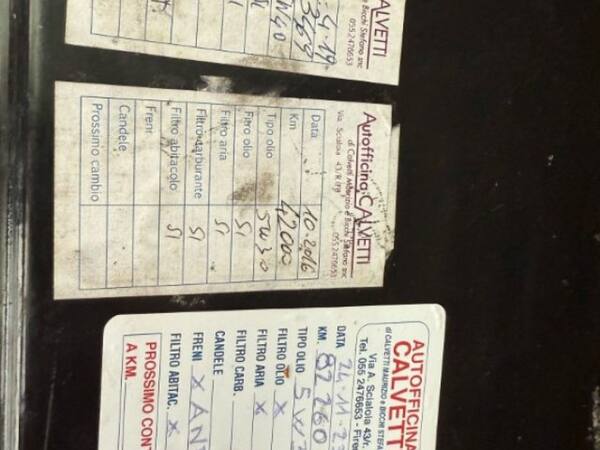 CALVETTI
Bicchi Stefano snc
055 2476653
4.19
Autofficina CALVETTI
di Calvetti Maurizio e Bicchi Stefano snc
Via Scialoia 43/R 055 2476653
Data 10.2016
Km 42000
Tipo olio 5W30
Filtro olio SI
Filtro aria SI
Filtro carburante SI
Filtro abitacolo SI
Freni
Candele
Prossimo cambio
AUTOFFICINA
CALVETT
di CALVETTI MAURIZIO e BICCHI STEFA
Via A. Scialoia 43/r
Tel. 055 2476653 - Fire
DATA 24.11.2
KM. 82260
TIPO OLIO 5W
FILTRO OLIO X
FILTRO ARIA X
FILTRO CARB.
CANDELE
FRENI X AN
FILTRO ABITAC. X
PROSSIMO CON
A KM.